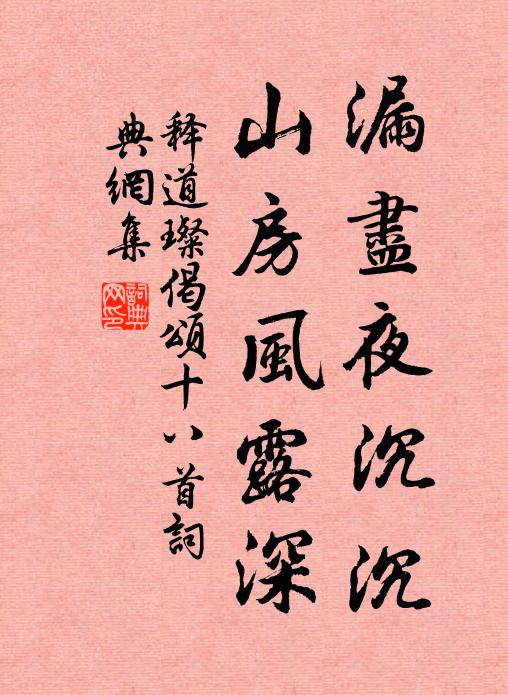 漏盡夜沉沉
山房風露深
释道璨偈頌十八首詞
典網集
詞典网印